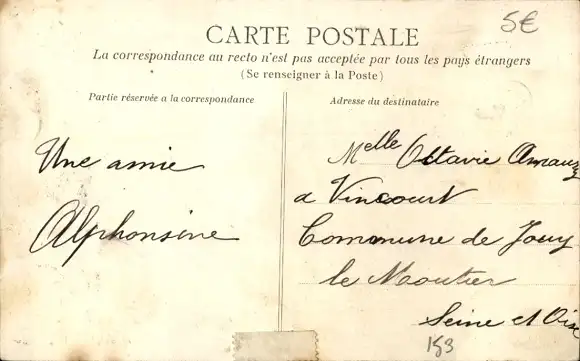 5€
CARTE POSTALE
La correspondance au recto n'est pas acceptée par tous les pays étrangers
(Se renseigner à la Poste)
Partie réservée a la correspondance
Adresse du destinataire
Une amie
Alphonsine
Melle Octavie
a Vincourt
Commune de Jouy
le Moutier
Seine et Oise
153